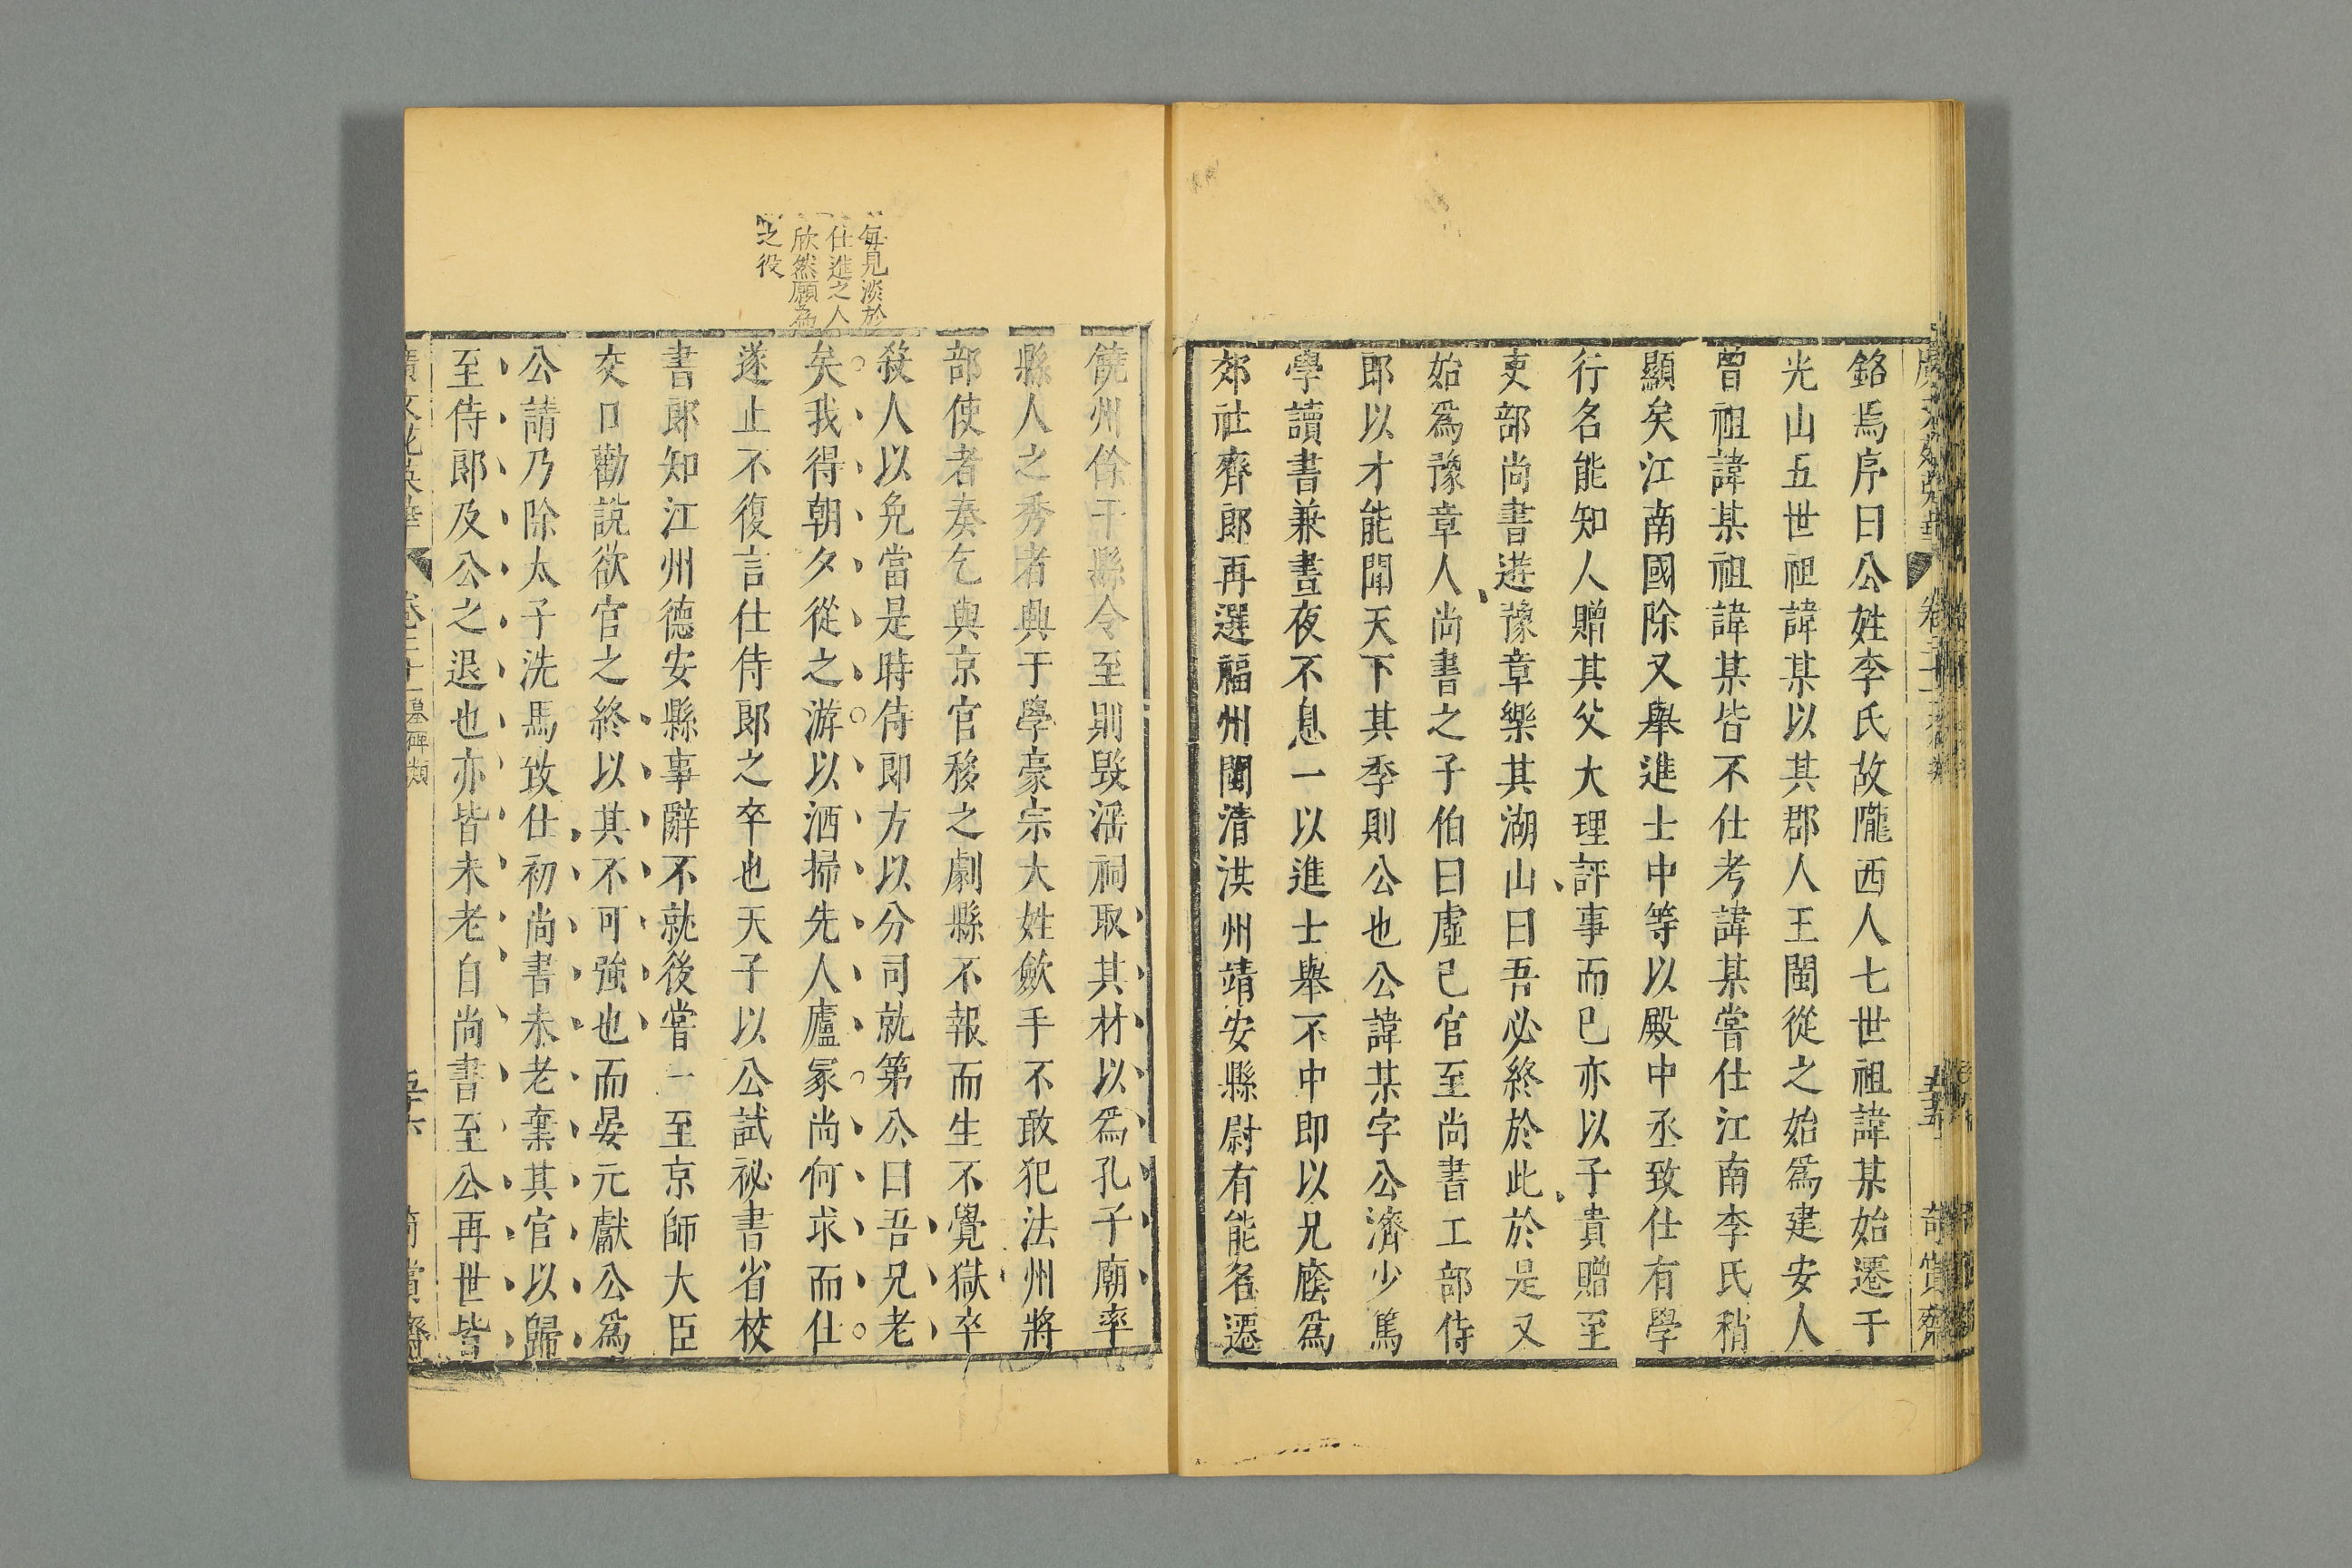 銘焉序曰公姓李氏故隴西人七世祖諱某始遷于
光山五世祖諱某以其郡人王閩從之始爲建安人
曾祖諱某祖諱某皆不仕考諱某嘗仕江南李氏稍
顯矣江南國除又舉進士中等以殿中丞致仕有學
行名能知人贈其父大理評事而已亦以子貴贈至
吏部尚書遊豫章樂其湖山曰吾必終於此於是又
始爲豫章人尚書之子伯曰虛己官至尚書工部侍
郎以才能聞天下其季則公也公諱某字公濟少篤
學讀書兼晝夜不息一以進士舉不中即以兄廕爲
郊社齊郎再選福州閩清洪州靖安縣尉有能名遷
每見淡於
仕進之人
欣然願爲
之役
饒州餘干縣令至則毀滛祠取其材以爲孔子廟率
縣人之秀者興于學豪宗大姓歛手不敢犯法州將
部使者奏乞與京官移之劇縣不報而生不覺獄卒
殺人以免當是時侍郎方以分司就第公曰吾兄老
矣我得朝夕從之游以洒掃先人廬冢尚何求而仕
遂止不復言仕侍郎之卒也天子以公試祕書省校
書郎知江州德安縣事辭不就後嘗一至京師大臣
交口勸說欲官之終以其不可強也而晏元獻公爲
公請乃除太子洗馬致仕初尚書未老棄其官以歸
至侍郎及公之退也亦皆未老自尚書至公再世皆